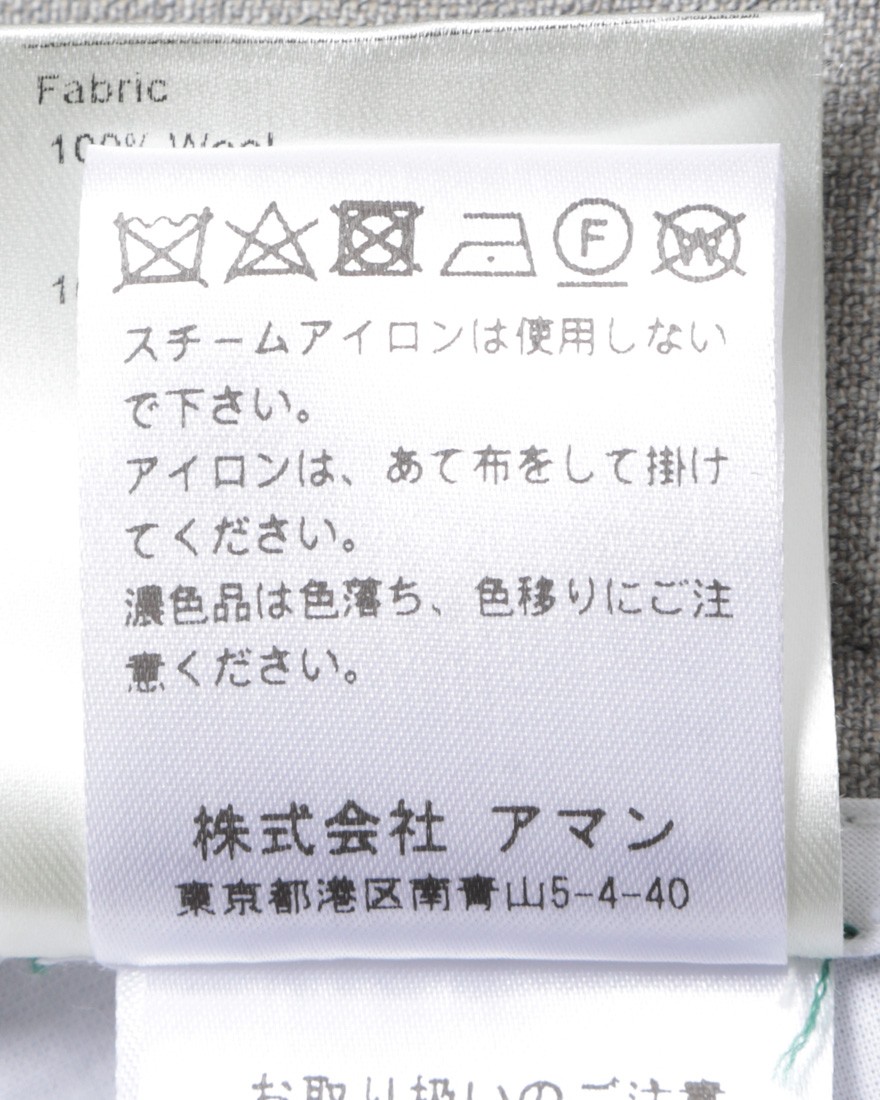 Fabric
100% Wool
F
W
スチームアイロンは使用しない
で下さい。
アイロンは、あて布をして掛け
てください。
濃色品は色落ち、色移りにご注
意ください。
株式会社 アマン
東京都港区南青山5-4-40
お取り扱いのご注意